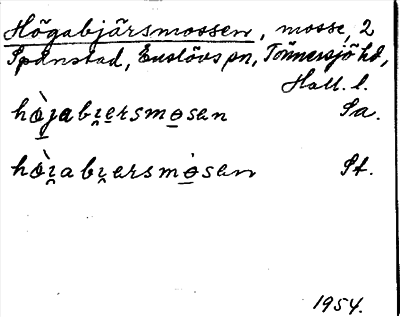 Högabjärsmossen, mosse, 2
Spånstad, Enslövs sn, Tönnersjö hd,
Hall. l.
hö̀jabi̯ersmosen Sa.
hö̀i̯abi̯ersmòsen St.
1954.